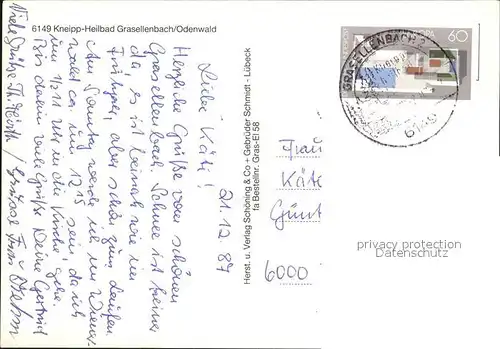 6149 Kneipp-Heilbad Grasellenbach/Odenwald
21.12.87
Liebe Käti!
Herzliche Grüße vom schönen
Grasellenbach. Schnee ist keiner
da, es ist beinah wie im
Frühjahr, aber schön zum Laufen.
Am Sonntag werde ich im Wiener-
wald ca. um 12.15 sein, da ich
um 1/2 11 Uhr in die Kirche gehe.
Bis dahin viele Grüße Deine Gertrud
Viele Grüße
Herst. u. Verlag Schöning & Co + Gebrüder Schmidt - Lübeck
fa Bestellnr. Gras-El 58
EUROPA
60
GRASELLENBACH 2
6149
Frau
Käte
Günt
6000
privacy protection
Datenschutz